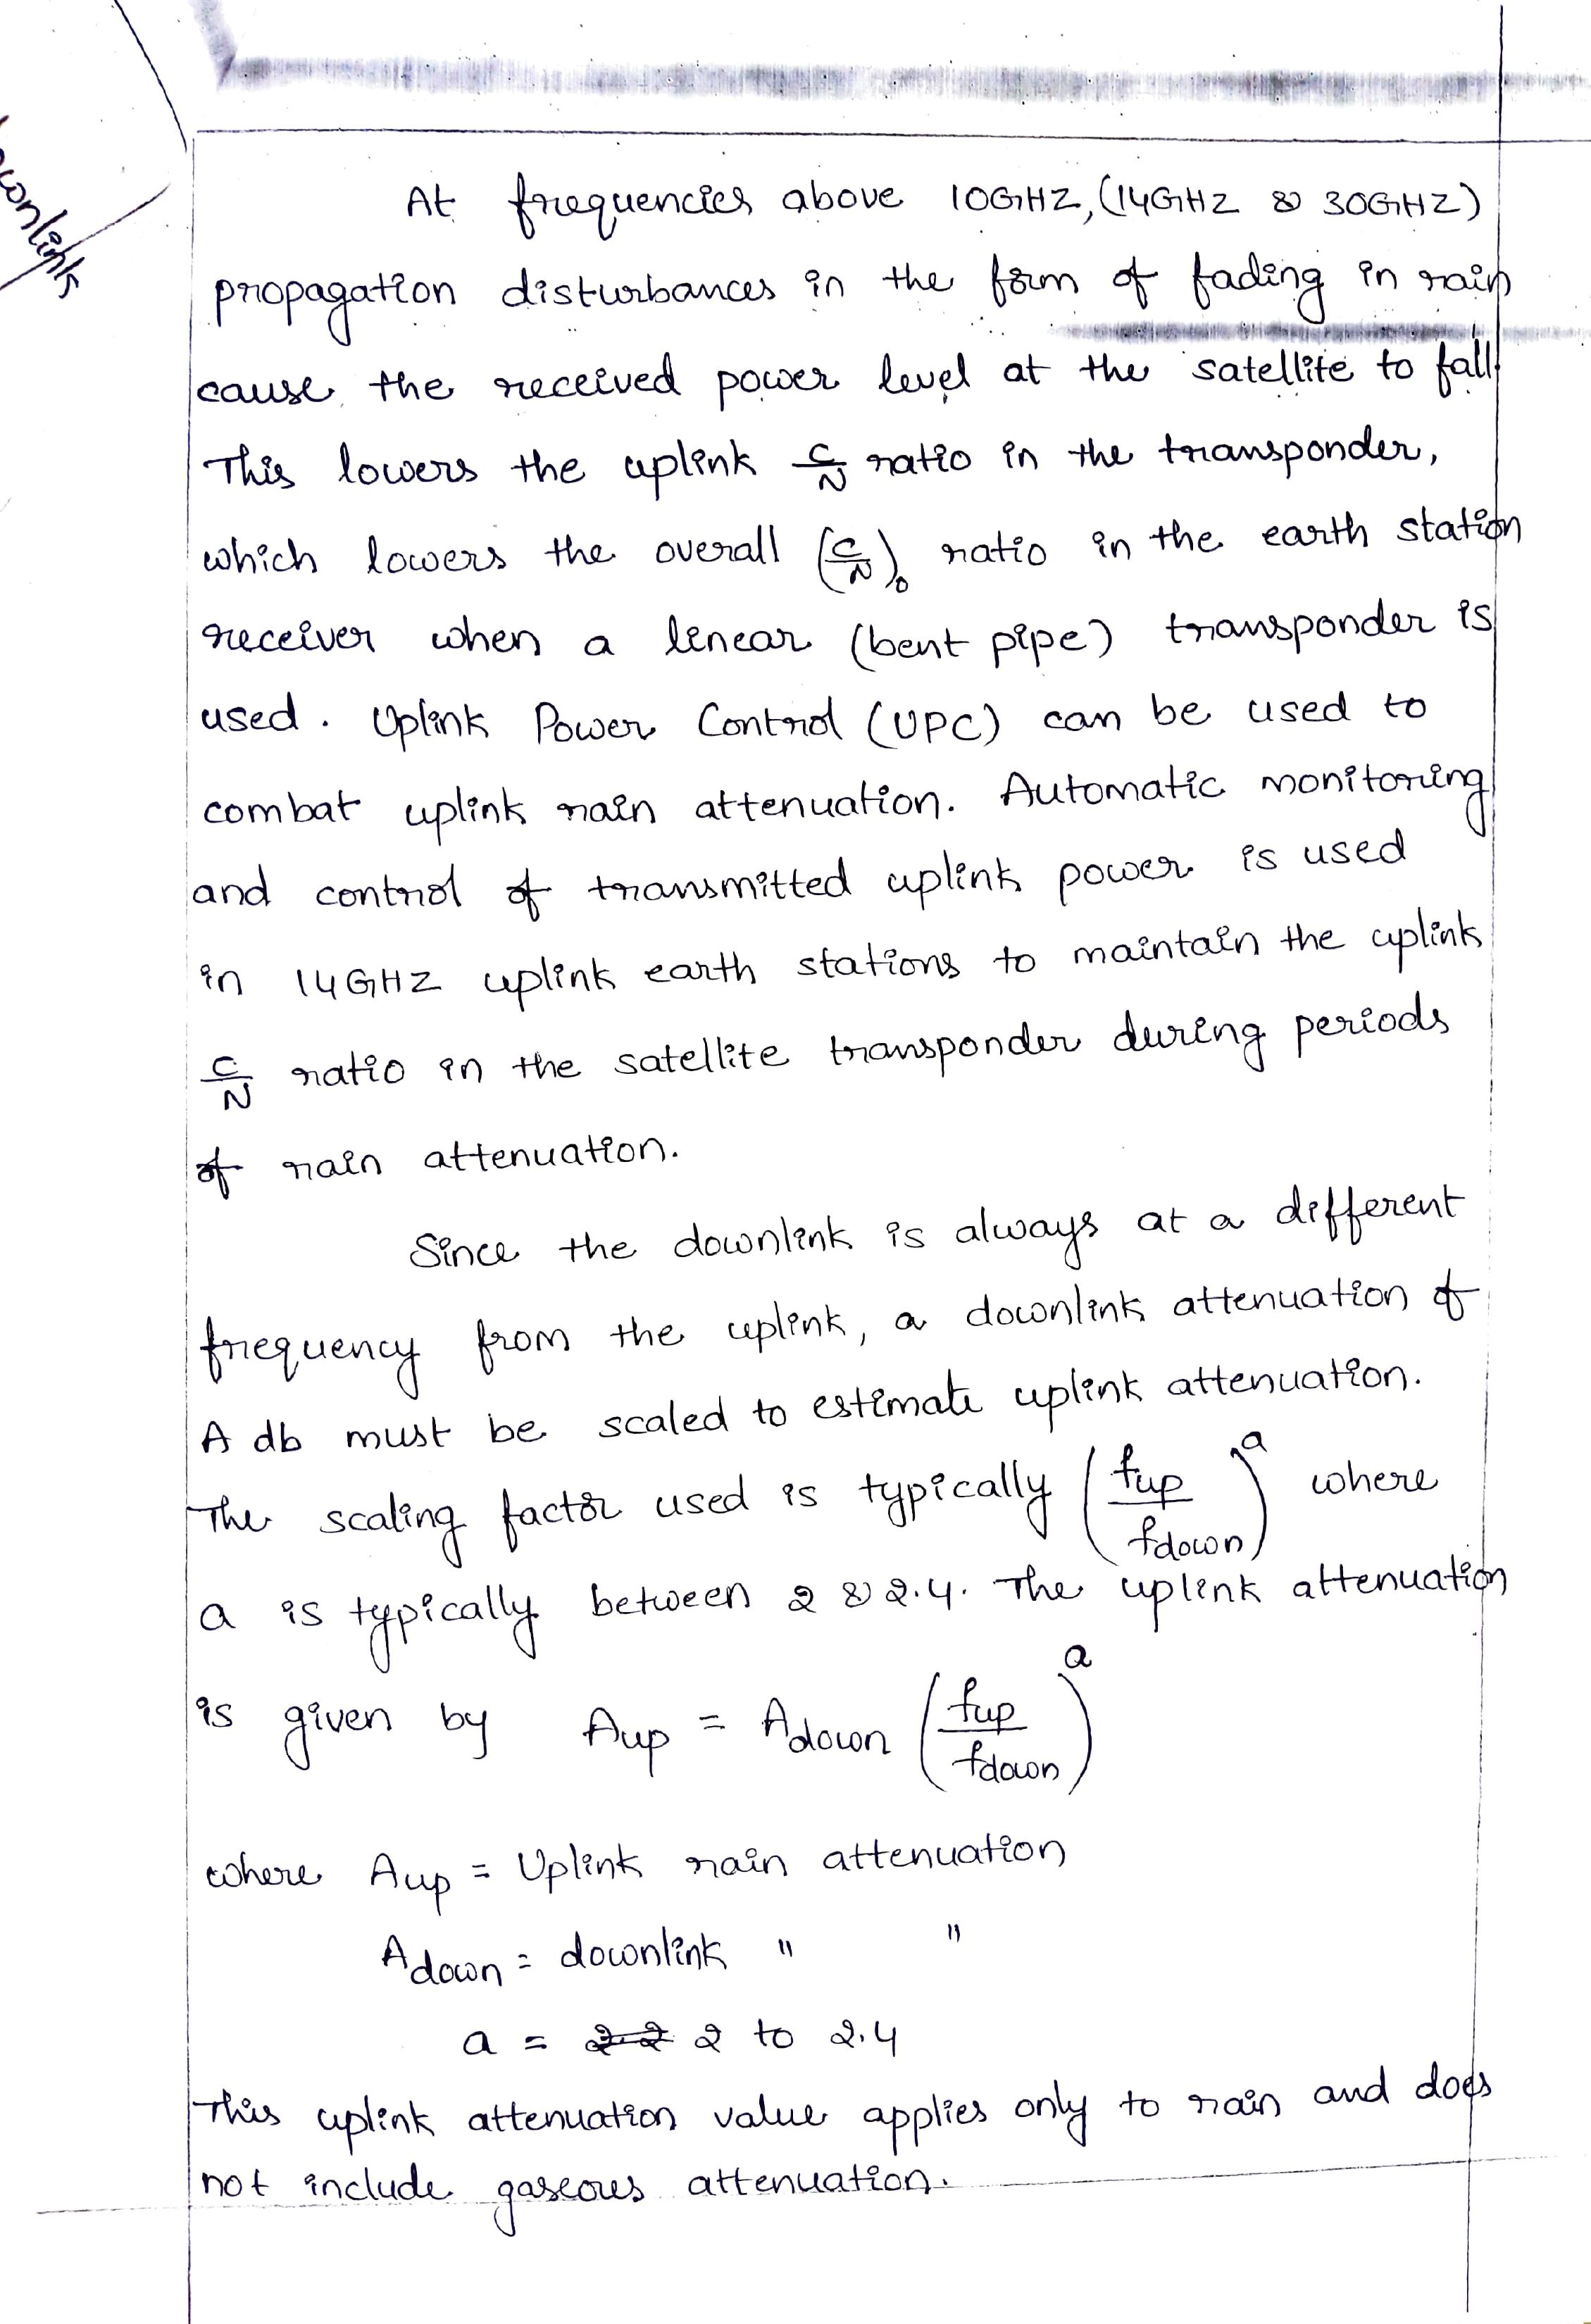 At frequencies above 10GHZ, (14GHZ & 30GHZ)
propagation disturbances in the form of fading in rain
cause the received power level at the satellite to fall.
This lowers the uplink C/N ratio in the transponder,
which lowers the overall (C/N)₀ ratio in the earth station
receiver when a linear (bent pipe) transponder is
used. Uplink Power Control (UPC) can be used to
combat uplink rain attenuation. Automatic monitoring
and control of transmitted uplink power is used
in 14GHZ uplink earth stations to maintain the uplink
C/N ratio in the satellite transponder during periods
of rain attenuation.
Since the downlink is always at a different
frequency from the uplink, a downlink attenuation of
A db must be scaled to estimate uplink attenuation.
The scaling factor used is typically (fup/fdown)^a where
a is typically between 2 & 2.4. The uplink attenuation
is given by Aup = Adown (fup/fdown)^a
where Aup = Uplink rain attenuation
Adown = downlink " "
a = 2 to 2.4
This uplink attenuation value applies only to rain and does
not include gaseous attenuation.